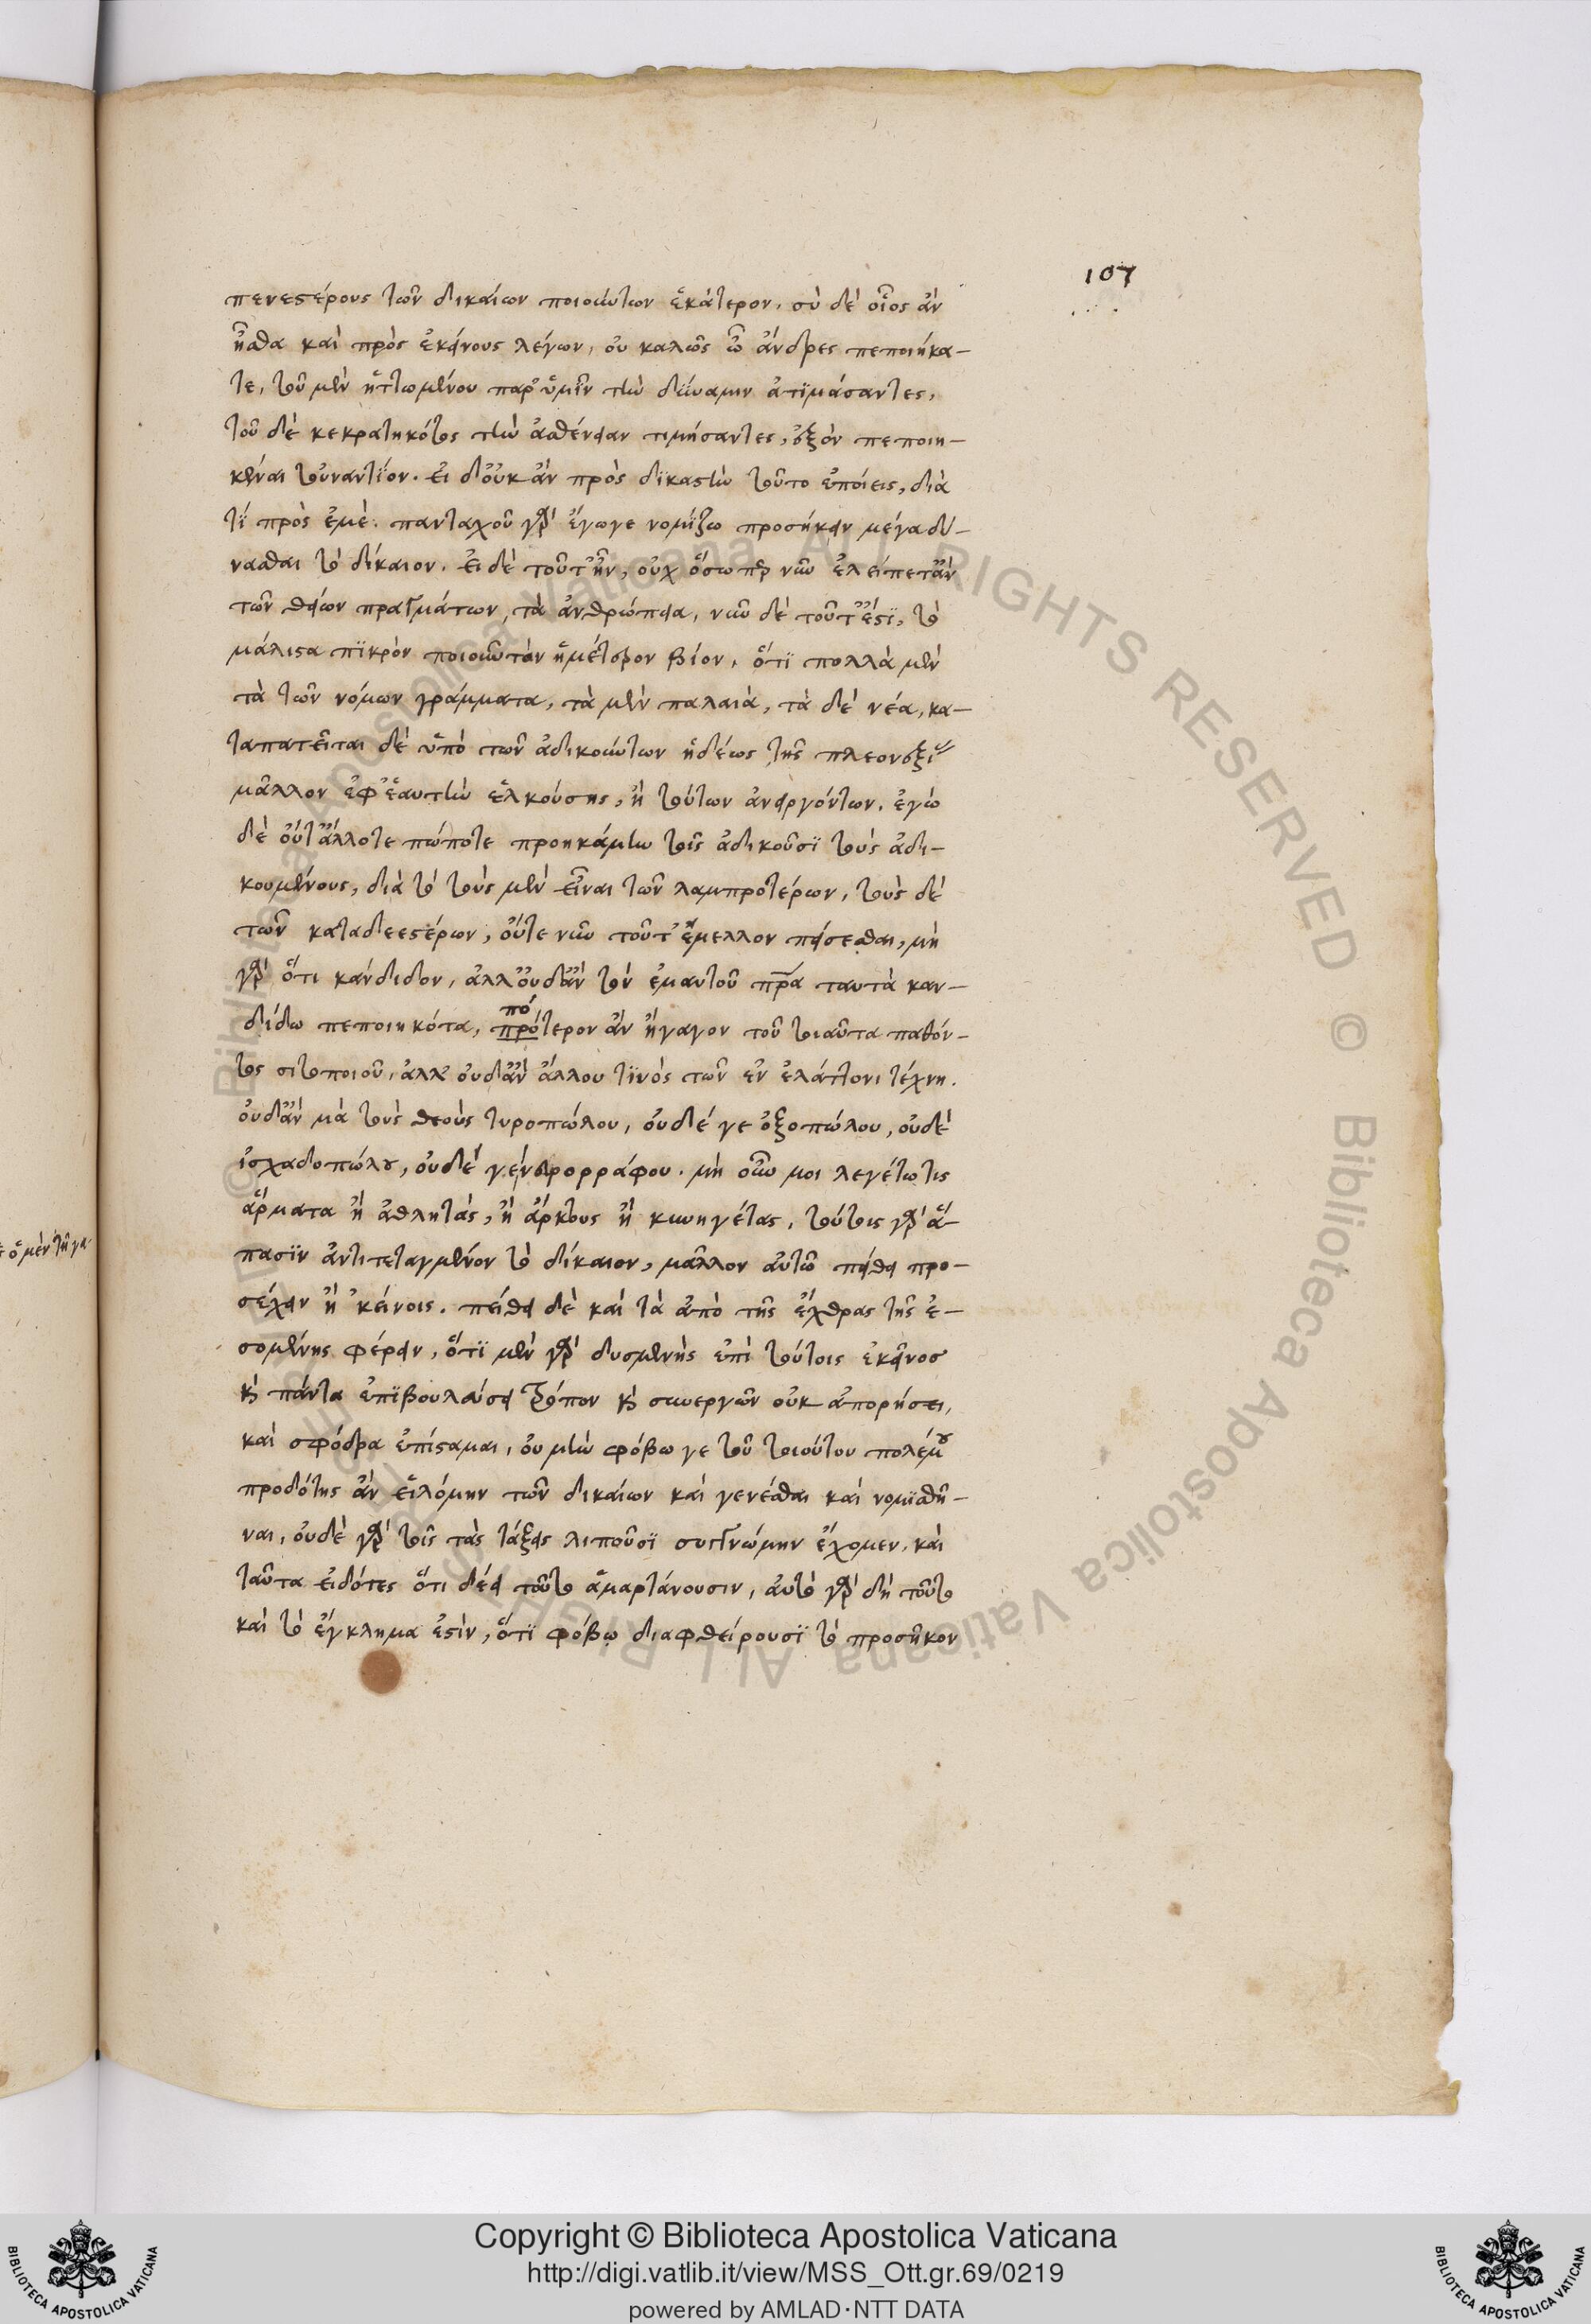 107
πενεστέρους τῶν δικαίων ποιούντων ἑκάτερον. σὺ δὲ οἷος ἂν
ἦσθα καὶ πρὸς ἐκείνους λέγων, οὐ καλῶς ὦ ἄνδρες πεποιήκα-
τε, τοῦ μὲν ἡττωμένου παρ' ὑμῖν τὴν δύναμιν ἀτιμάσαντες,
τοῦ δὲ κεκρατηκότος τὴν ἀσθένειαν τιμήσαντες, ἐξὸν πεποιη-
κέναι τοὐναντίον. εἰ δ' οὐκ ἂν πρὸς δικαστὴν τοῦτο ἐποίεις, διὰ
τί πρὸς ἐμέ. πανταχοῦ γὰρ ἔγωγε νομίζω προσήκειν μέγα δύ-
νασθαι τὸ δίκαιον. εἰ δὲ τοῦτ' ἦν, οὐχ ὅσωπερ νῦν ἐλείπετ' ἂν
τῶν θείων πραγμάτων, τὰ ἀνθρώπεια, νῦν δὲ τοῦτ' ἐστὶ, τὸ
μάλιστα πικρὸν ποιοῦν τὸν ἡμέτερον βίον, ὅτι πολλὰ μὲν
τὰ τῶν νόμων γράμματα, τὰ μὲν παλαιὰ, τὰ δὲ νέα, κα-
ταπατεῖται δὲ ὑπὸ τῶν ἀδικούντων ἡδέως τῆς πλεονεξίας
μᾶλλον ἐφ' ἑαυτὴν ἑλκούσης, ἢ τούτων ἀνειργόντων. ἐγὼ
δὲ οὔτ' ἄλλοτε πώποτε προηκάμην τοῖς ἀδικοῦσι τοὺς ἀδι-
κουμένους, διὰ τὸ τοὺς μὲν εἶναι τῶν λαμπροτέρων, τοὺς δὲ
τῶν καταδεεστέρων, οὔτε νῦν τοῦτ' ἔμελλον πείσεσθαι, μὴ
γὰρ ὅτι κάνδιδον, ἀλλ' οὐδ' ἂν τὸν ἐμαυτοῦ πατέρα ταυτὰ καν-
δίδω πεποιηκότα, πρότερον ἂν ἤγαγον τοῦ τοιαῦτα παθόν-
πό
τος σιτοποιοῦ, ἀλλ' οὐδ' ἂν ἄλλου τινὸς τῶν ἐν ἐλάττονι τέχνῃ.
οὐδ' ἂν μὰ τοὺς θεοὺς τυροπώλου, οὐδέ γε ὀξοπώλου, οὐδὲ
ἰσχαδοπώλου, οὐδέ γε νευρορράφου. μὴ οὖν μοι λεγέτω τις
ἅρματα ἢ ἀθλητὰς, ἢ ἄρκτους ἢ κυνηγέτας, τούτοις γὰρ ἅ-
πασιν ἀντιτεταγμένον τὸ δίκαιον, μᾶλλον αὐτῷ πείθει προ-
σέχειν ἢ 'κείνοις. πείθει δὲ καὶ τὰ ἀπὸ τῆς ἔχθρας τῆς ἐ-
σομένης φέρειν, ὅτι μὲν γὰρ δυσμενὴς ἐπὶ τούτοις ἐκεῖνος
καὶ πάντα ἐπιβουλεύσει τρόπον καὶ συνεργῶν οὐκ ἀπορήσει,
καὶ σφόδρα ἐπίσταμαι, οὐ μὴν φόβω γε τοῦ τοιούτου πολέμου
προδότης ἂν εἱλόμην τῶν δικαίων καὶ γενέσθαι καὶ νομισθῆ-
ναι, οὐδὲ γὰρ τοῖς τὰς τάξεις λιποῦσι συγγνώμην ἔχομεν, καὶ
ταῦτα εἰδότες ὅτι δέει τοῦτο ἁμαρτάνουσιν, αὐτὸ γὰρ δὴ τοῦτο
καὶ τὸ ἔγκλημα ἐστὶν, ὅτι φόβῳ διαφθείρουσι τὸ προσῆκον
Copyright © Biblioteca Apostolica Vaticana
http://digi.vatlib.it/view/MSS_Ott.gr.69/0219
powered by AMLAD·NTT DATA